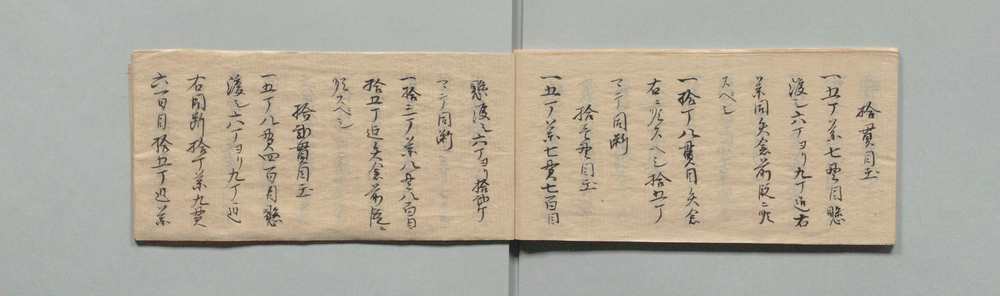 拾貫目玉
一五丁薬七貫目懸
渡シ六丁ヨリ九丁迄右
薬同矢倉前段ニ准
スベシ
一拾丁八貫目矢倉
右ニ准スヘシ拾五丁
マテ同断
拾壱貫目玉
一五丁薬七貫七百目
懸渡シ六丁ヨリ拾弐丁
マテ同断
一拾三丁薬八貫八百目
拾五丁迄矢倉前段ニ
准スベシ
拾弐貫目玉
一五丁八貫四百目懸
渡シ六丁ヨリ九丁迄
右同断拾丁薬九貫
六百目拾五丁迄薬